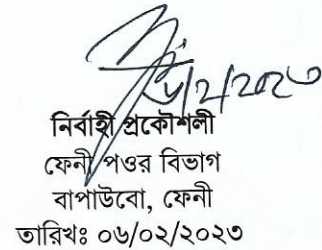 ০৬/২/২০২৩
নির্বাহী প্রকৌশলী
ফেনী পওর বিভাগ
বাপাউবো, ফেনী
তারিখঃ ০৬/০২/২০২৩